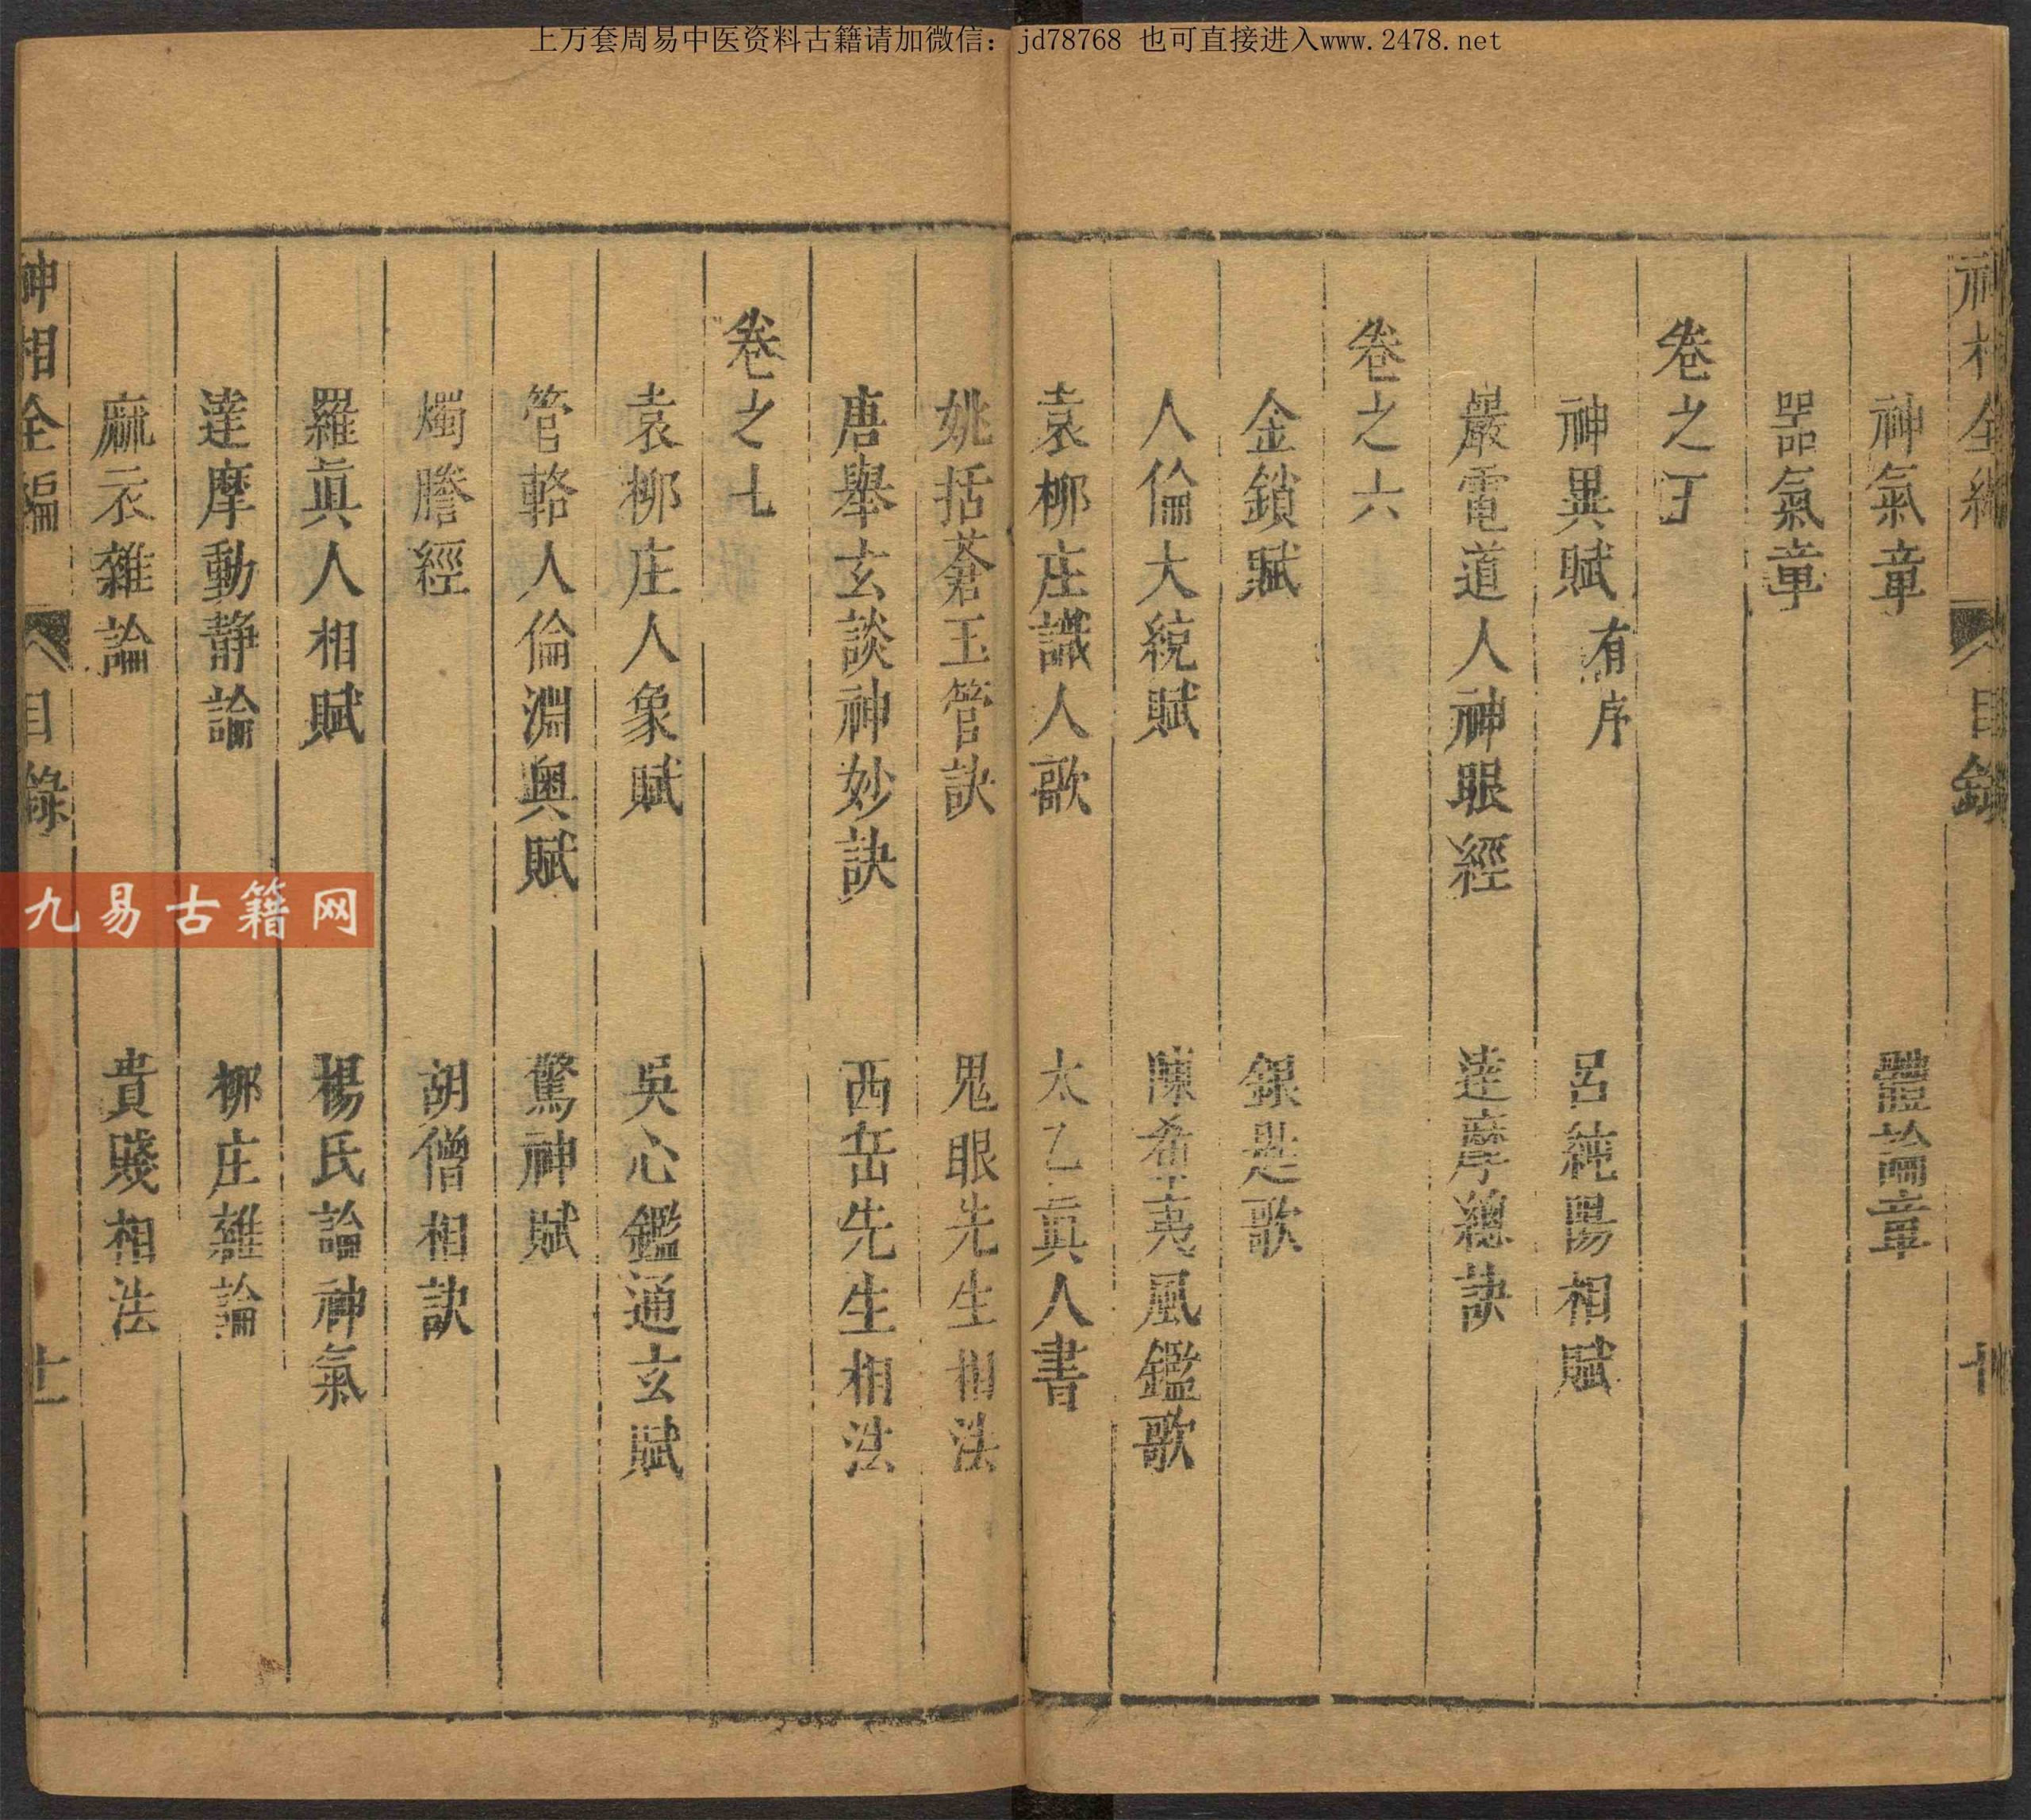 上万套周易中医资料古籍请加微信：jd78768 也可直接进入www.2478.net
神相全編 目錄 十
神氣章 體論章
噐氣章
卷之五
神異賦 有序 呂純陽相賦
嚴電道人神眼經 達摩總訣
卷之六
金鎖賦 銀匙歌
人倫大統賦 陳希夷風鑑歌
袁柳庄識人歌 太乙眞人書
姚括蒼玉管訣 鬼眼先生相法
唐舉玄談神妙訣 西岳先生相法
卷之七
袁柳庄人象賦 吳心鑑通玄賦
管輅人倫淵奧賦 驚神賦
燭膽經 胡僧相訣
羅眞人相賦 楊氏論神氣
達摩動静論 柳庄雜論
麻衣雜論 貴賤相法
神相全編 目錄 十一
九易古籍网